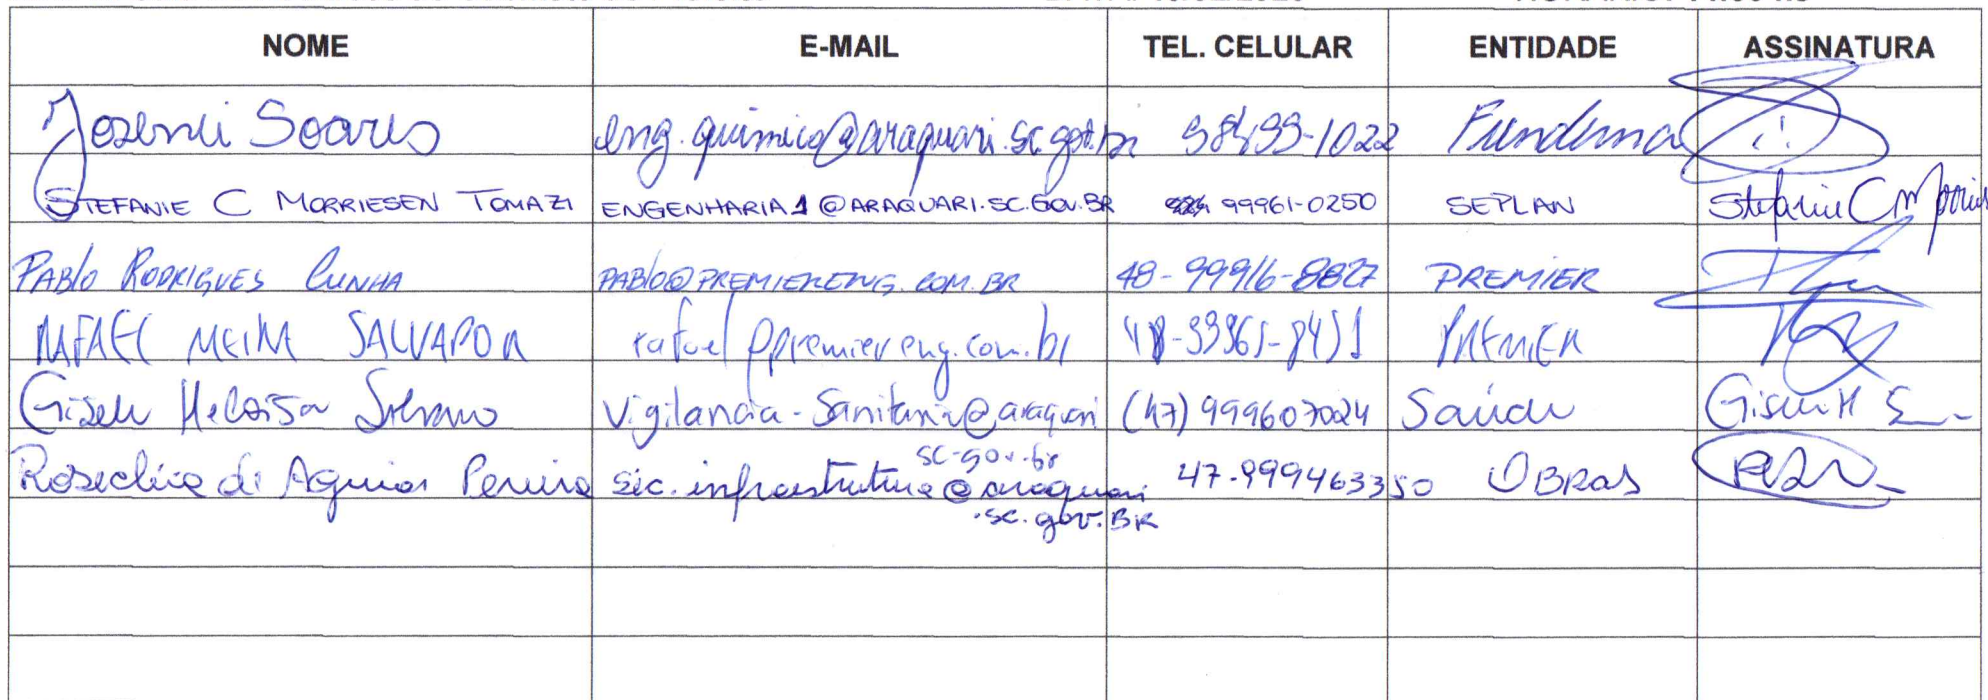 NOME E-MAIL TEL. CELULAR ENTIDADE ASSINATURA
Josenei Soares eng.quimico@araquari.sc.gov.br 98499-1022 Fundema
STEFANIE C MORRIESEN TOMAZI ENGENHARIA1@ARAQUARI.SC.GOV.BR 99961-0250 SEPLAN Stefanie C Morries
PABLO RODRIGUES CUNHA PABLO@PREMIERENG.COM.BR 48-99916-8827 PREMIER
RAFAEL MEIRA SALVADOR rafael@premiereng.com.br PREMIER
Gisele Heloisa vigilancia-sanitaria@araquari (47) 999607024 Saúde Gisele H S
sc.gov.br
Rosecléia de Aguiar Pereira sec.infraestrutura@araquari 47-999463350 OBRAS
.sc.gov.BR